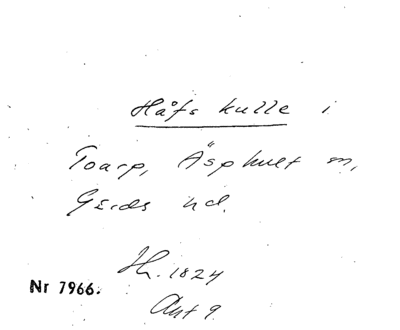 Håfs kulle i
Toarp, Äsphult sn,
Gärds hd.
Hh. 1824
Akt 9.
Nr 7966.